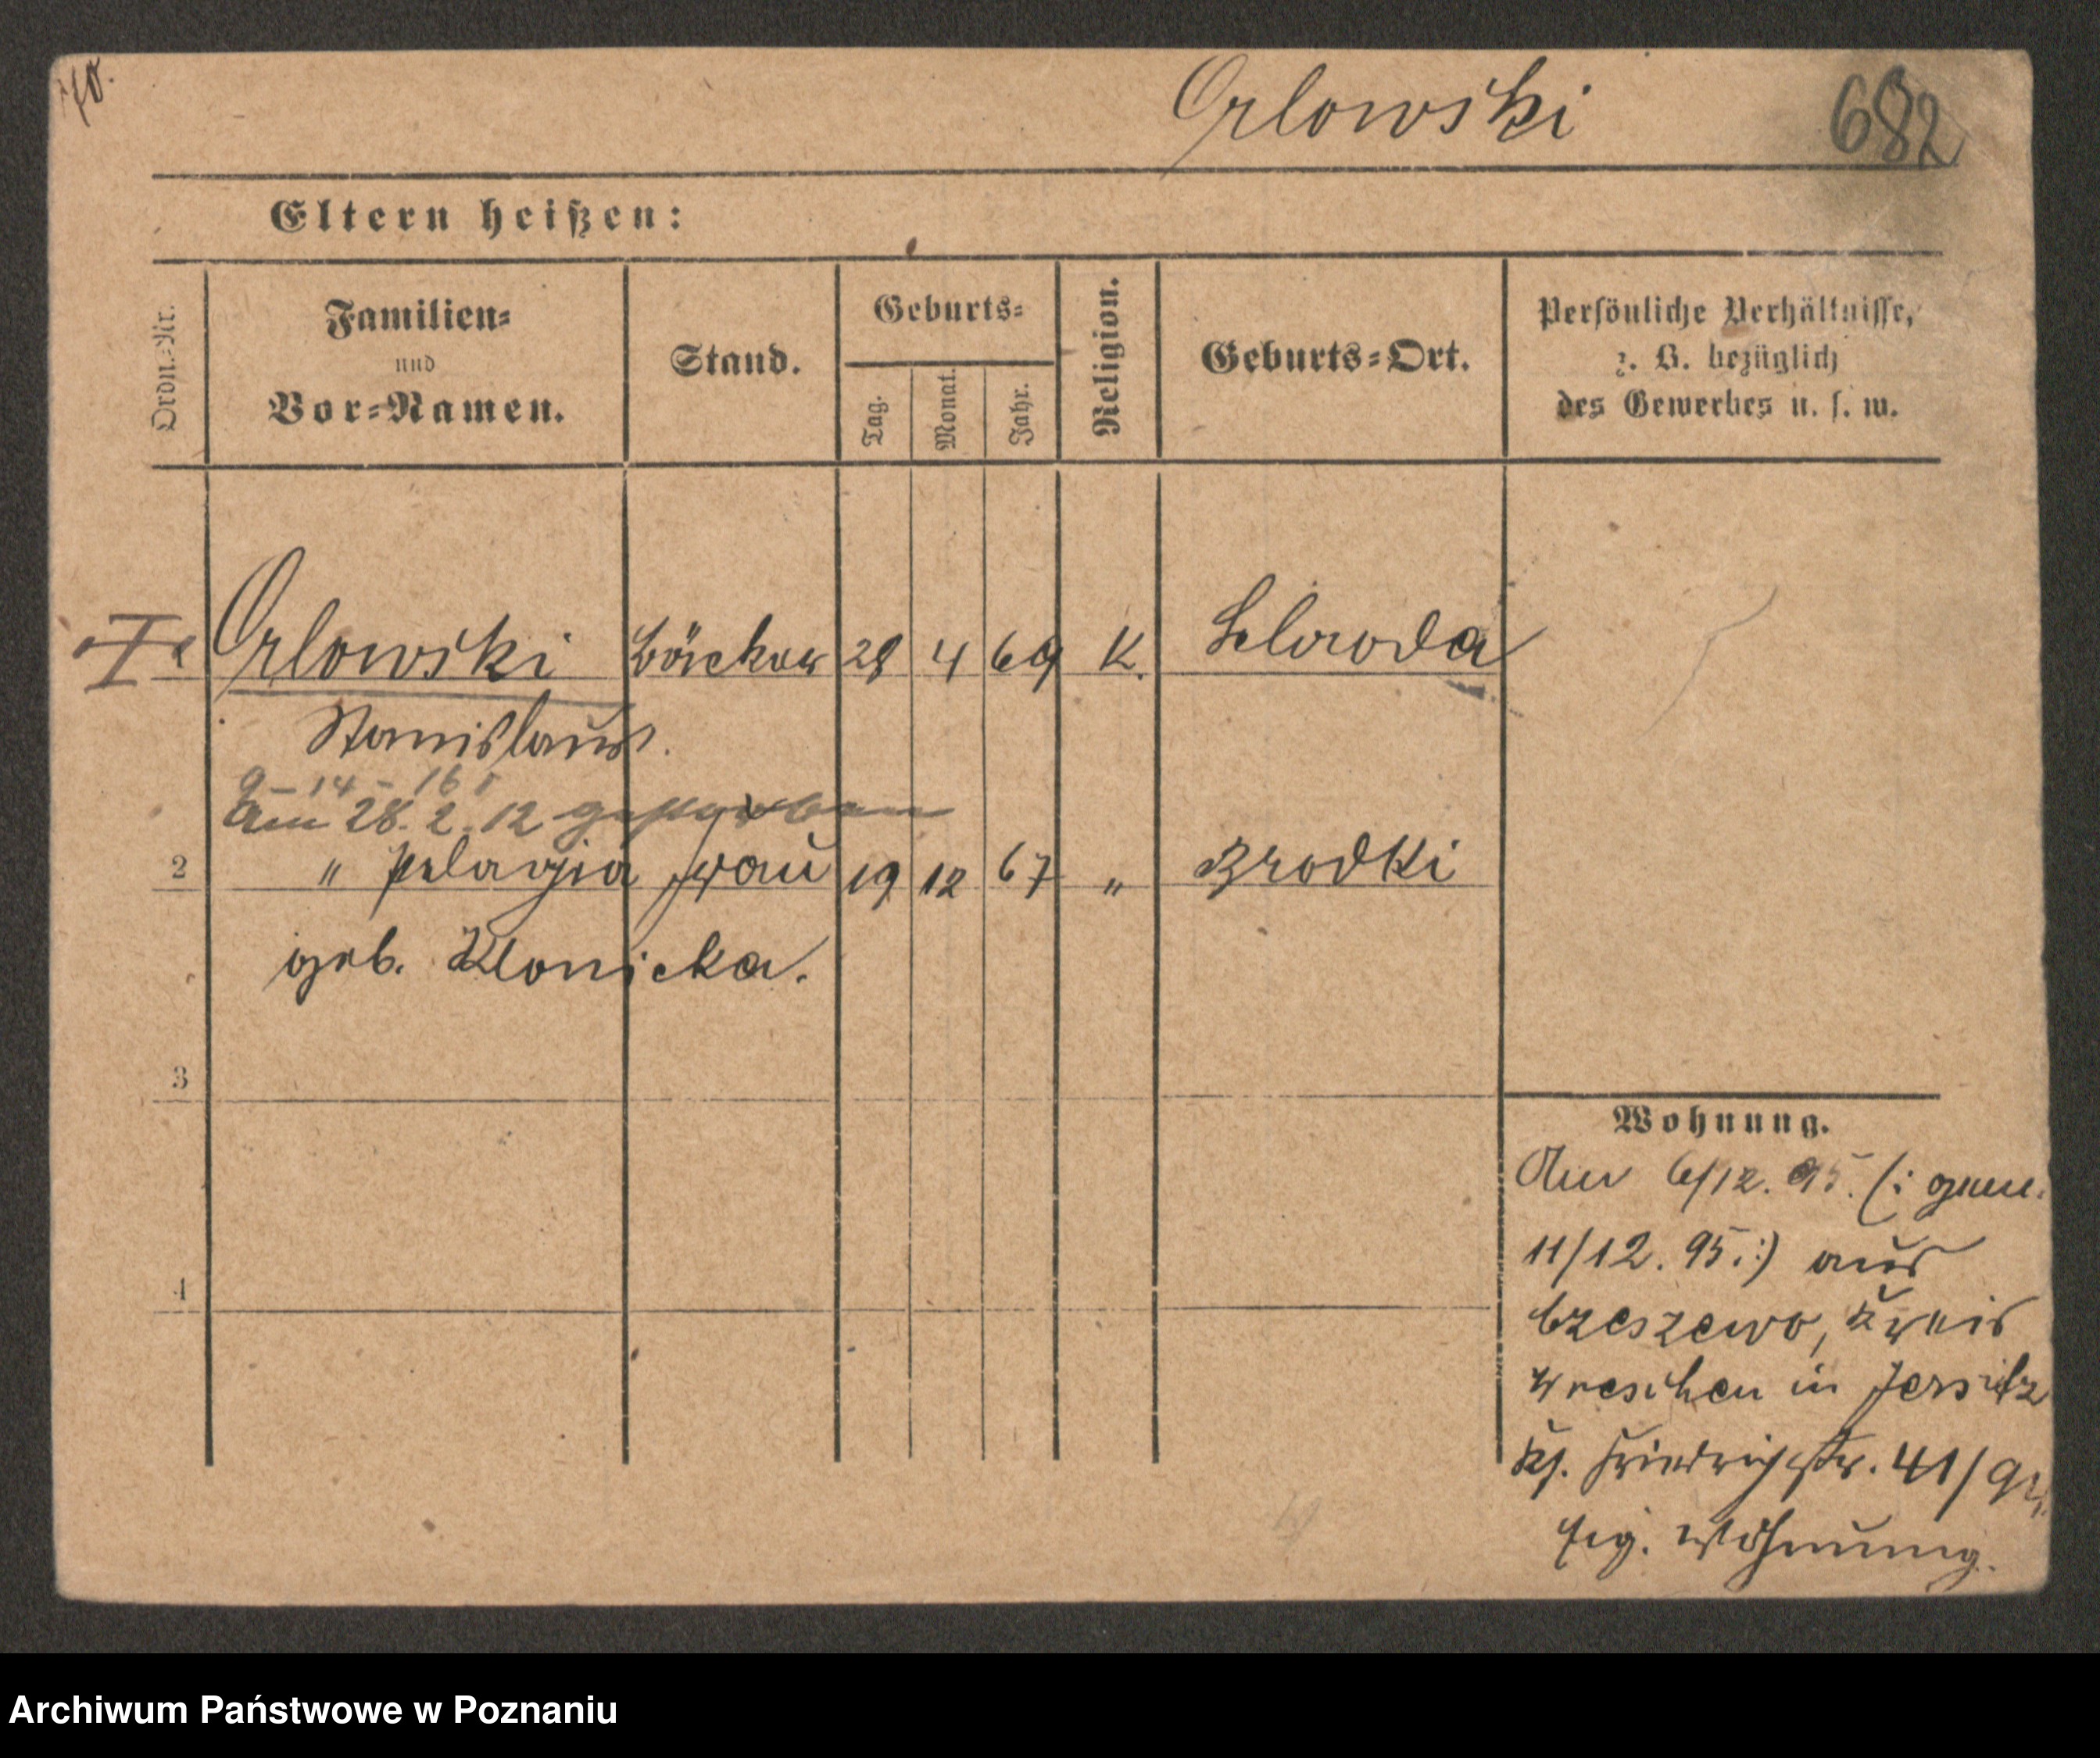 Orlowski 682
Eltern heißen:
Ordn.-Nr.
Familien-
und
Vor-Namen.
Stand.
Geburts-
Tag.
Monat.
Jahr.
Religion.
Geburts-Ort.
Persönliche Verhältnisse,
z. B. bezüglich
des Gewerbes u. s. w.
Orlowski Bäcker 28 4 69 K.
Stanislaus.
9 - 14 - 16
Am 28. 2. 12 gestorben
2 " Pelagia Frau 19 12 67 " Brodki
geb. Klonicka.
3
4
Wohnung.
Am 6/12. 95. (: gem.
11/12. 95 :) aus
Czeszewo, Kreis
Wreschen in Jersitz
Ks. Friedrichstr. 41/
eig. Wohnung.
Archiwum Państwowe w Poznaniu